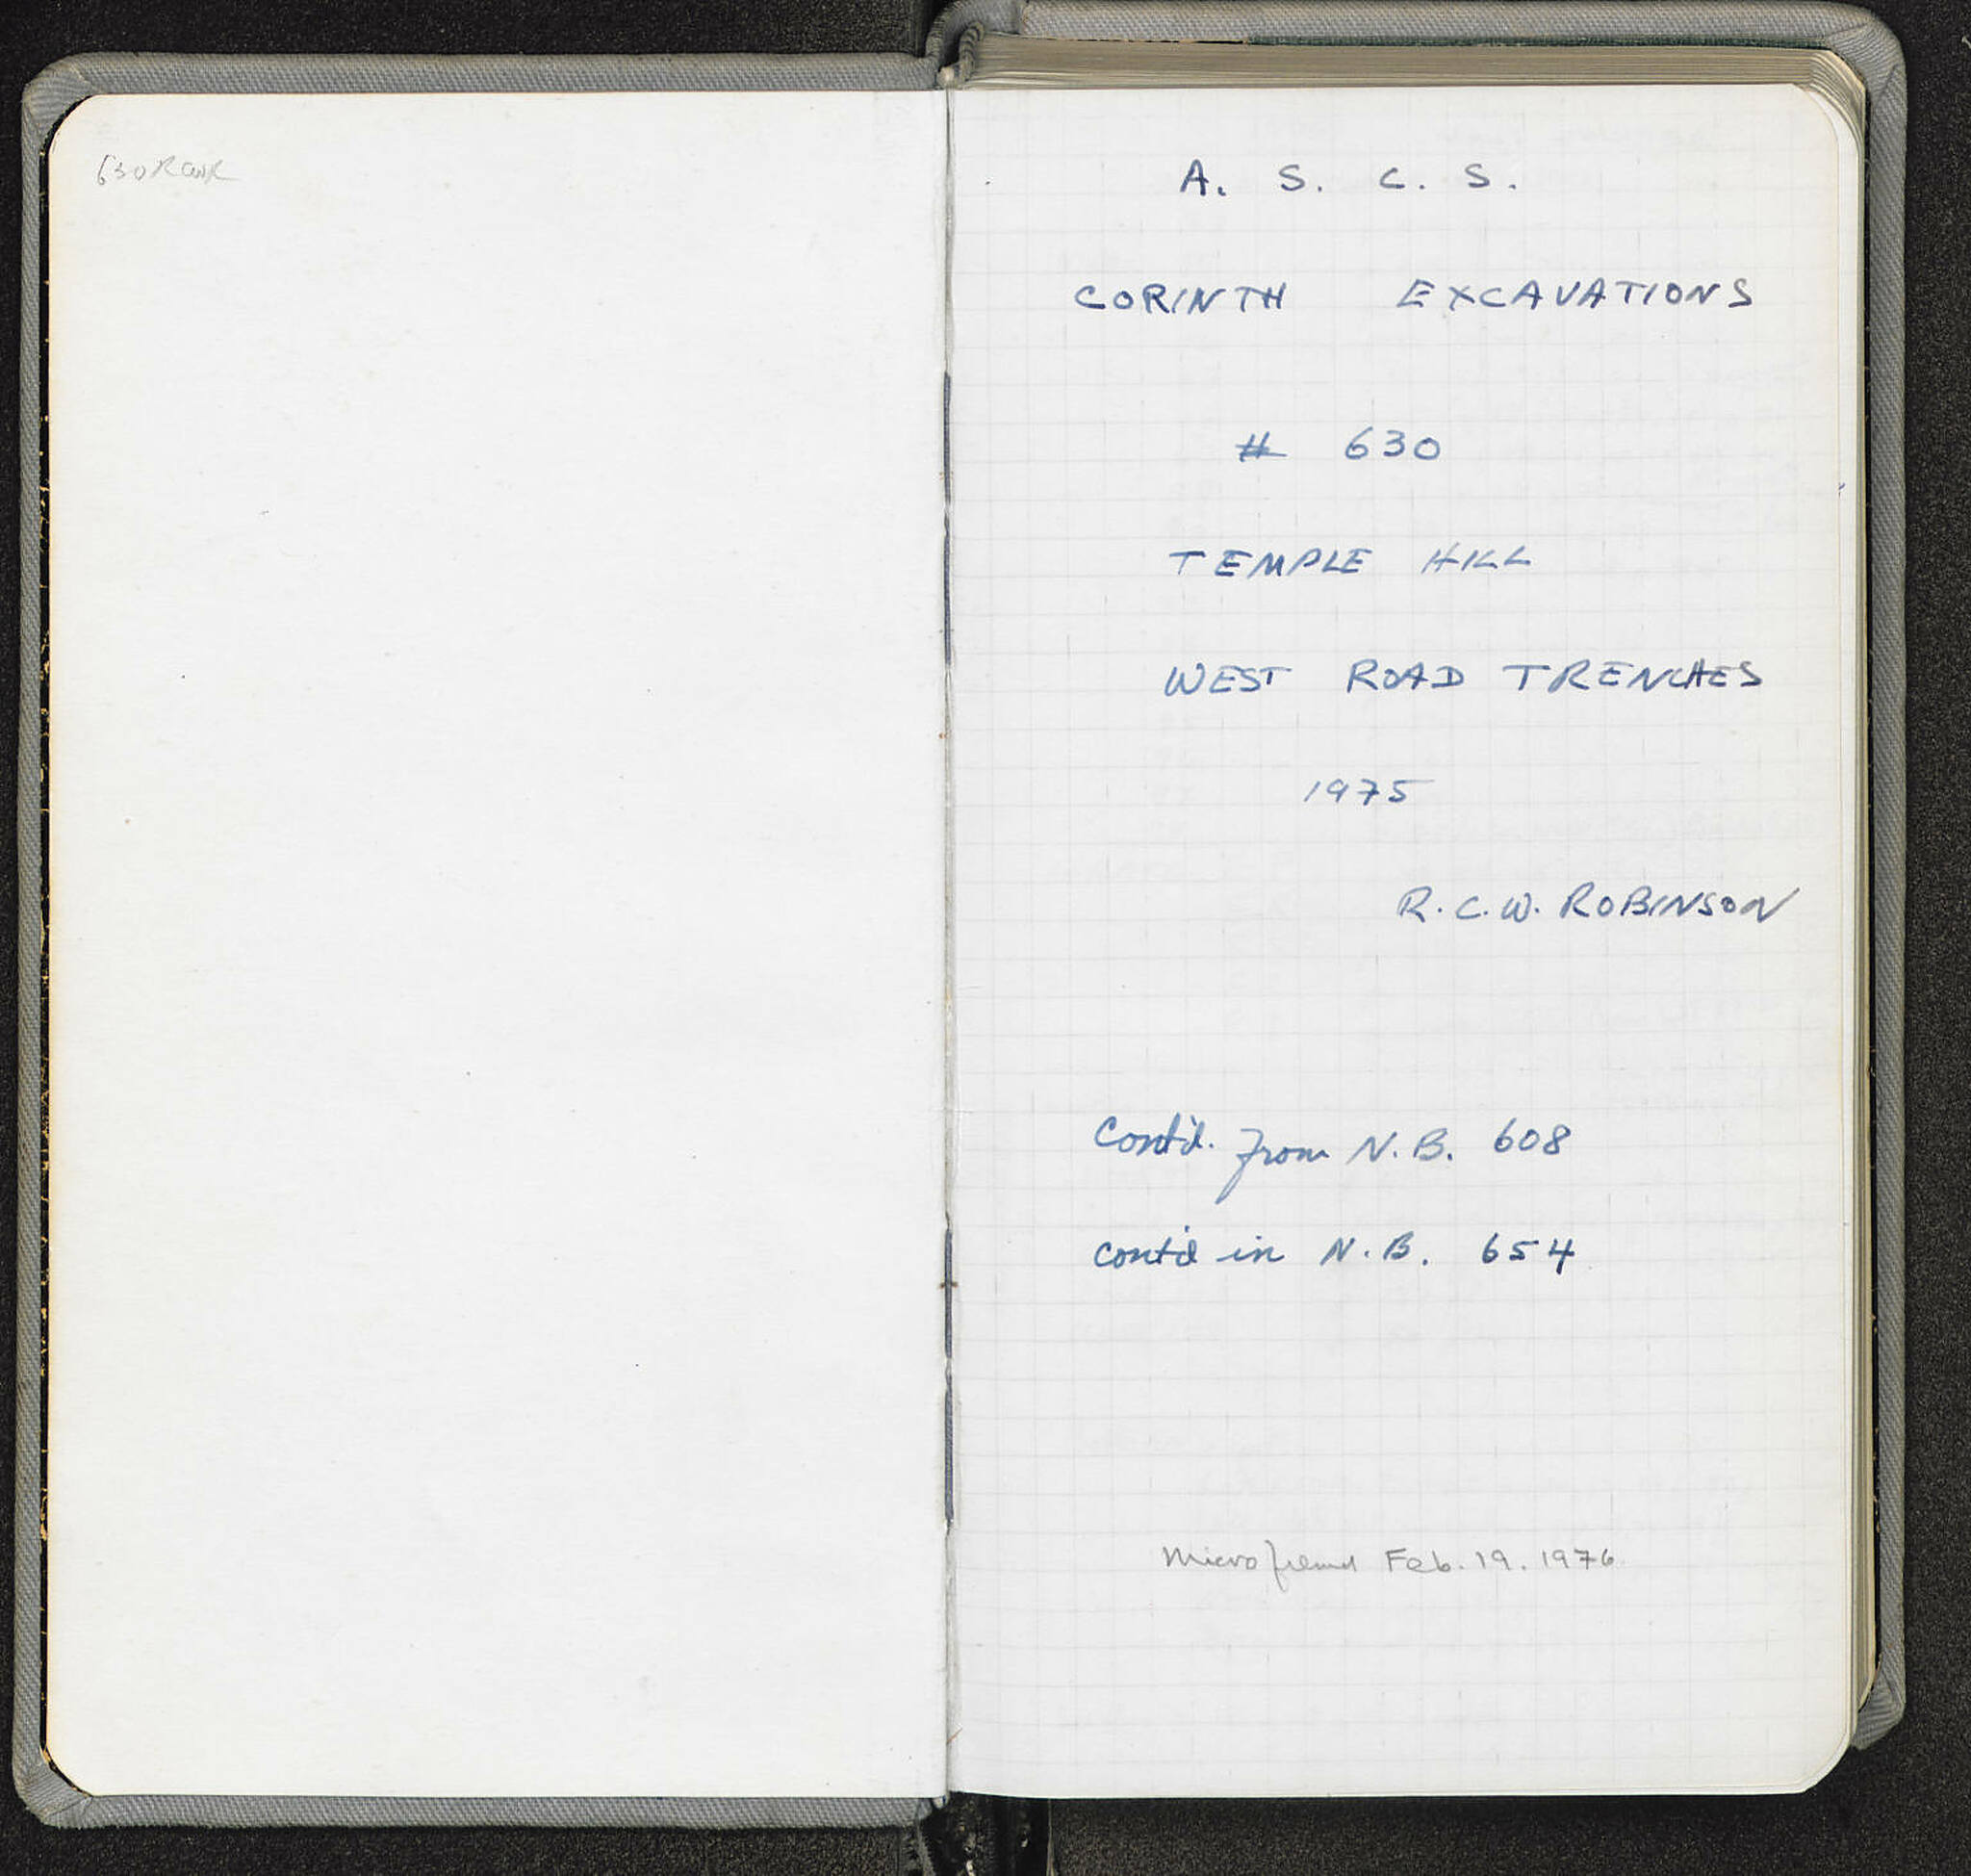 630 RCWR
A. S. C. S.
CORINTH EXCAVATIONS
# 630
TEMPLE HILL
WEST ROAD TRENCHES
1975
R.C.W. ROBINSON
Cont'd. from N.B. 608
Cont'd in N.B. 654
Microfilmed Feb. 19. 1976